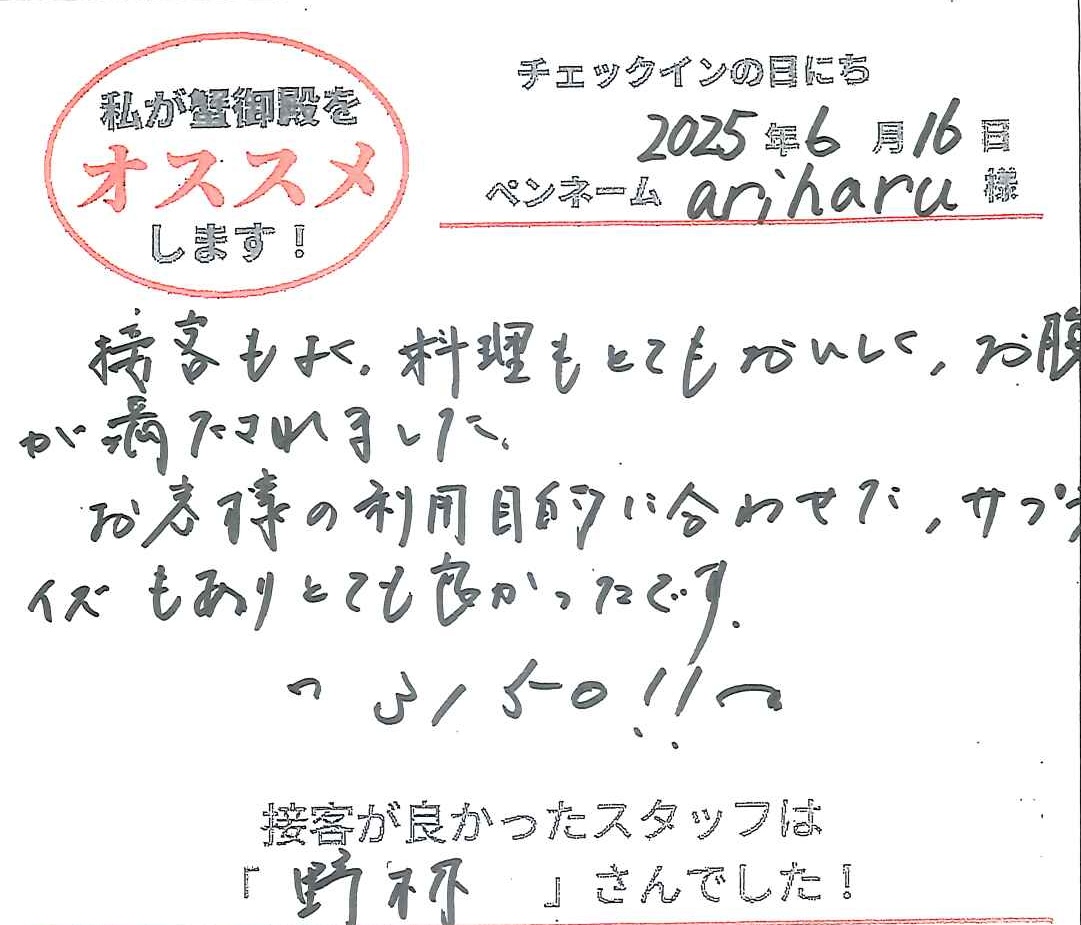 私が蟹御殿を
オススメ
します!
チェックインの日にち
2025年6月16日
ペンネーム ariharu 様
接客もよく、料理もとてもおいしく、お腹
が満たされました。
お客様の利用目的に合わせた、サプラ
イズもありとても良かったです。
接客が良かったスタッフは
「 野 」さんでした!